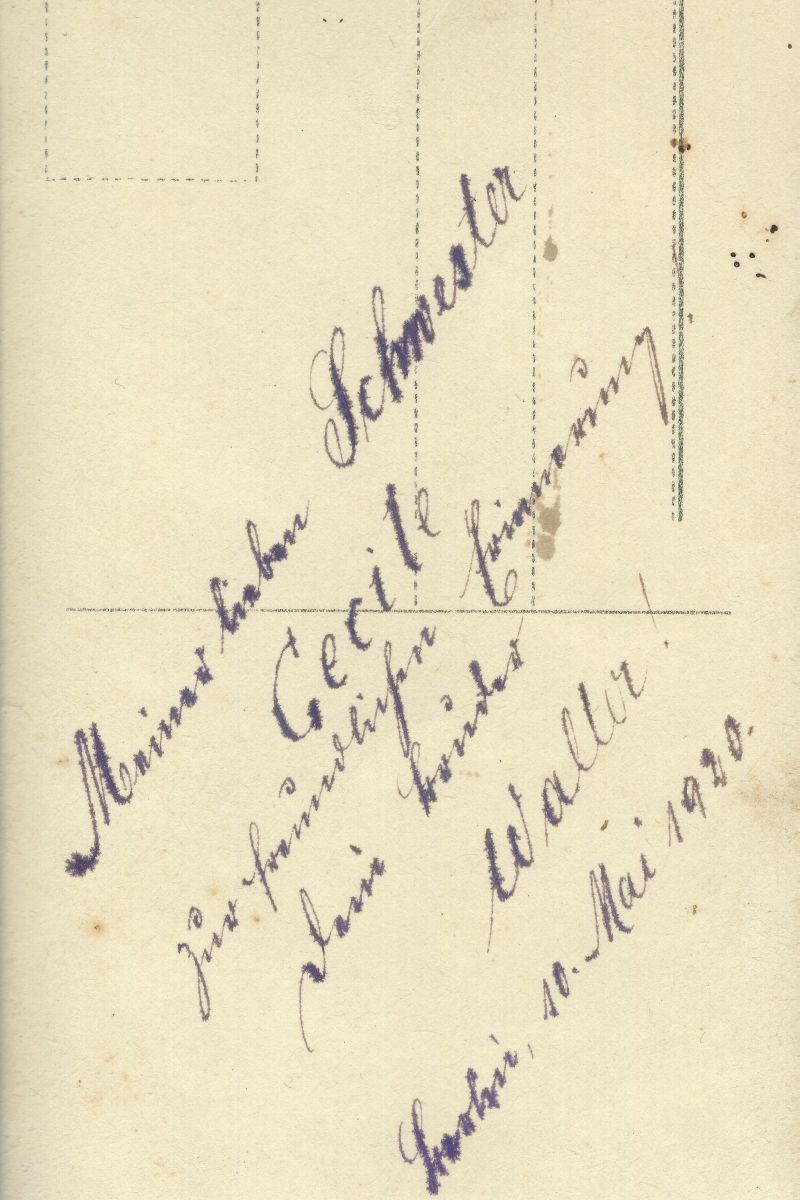 Meiner lieben Schwester
Cecile
zur freundlichen Erinnerung
Dein Bruder
Walter!
10. Mai 1920.